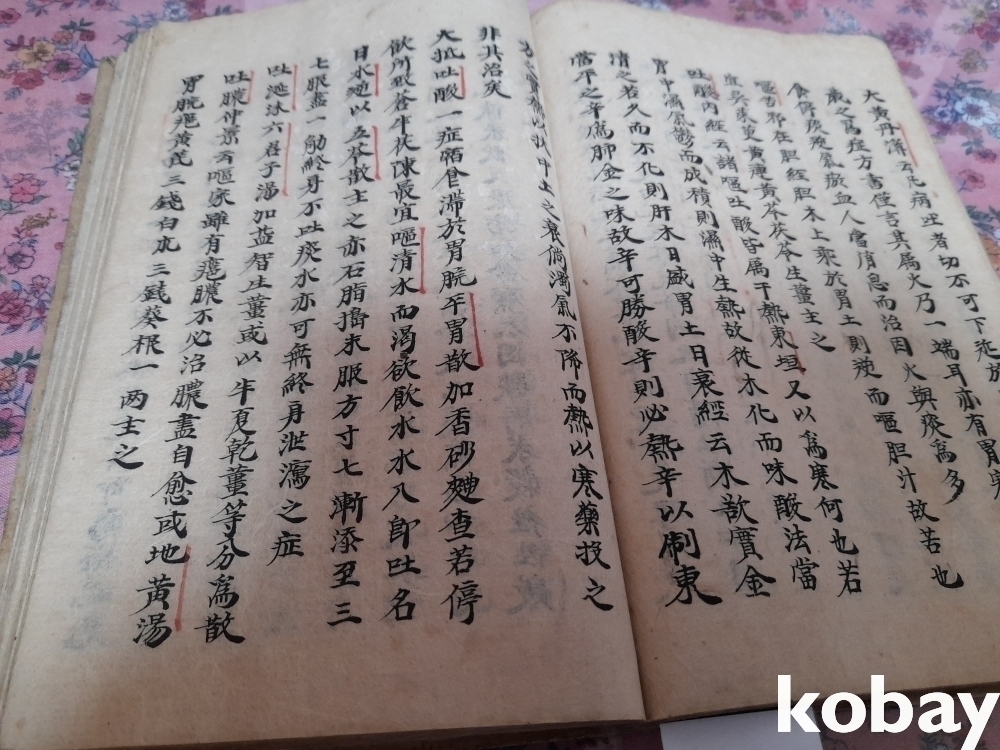 大黃丹溪云凡病嘔吐者切不可下
歲之爲症方書僅言其屬火乃一端耳亦有胃寒
食停痰飮氣瘀血人當消息而治因火與痰爲多
嘔苦邪在胆經胆木上乘於胃土則逆而嘔胆汁故苦也
吳茱萸黃連黃芩茯苓生薑主之
吐酸內經云諸嘔吐酸皆屬于熱東垣又以爲寒何也若
胃中濕氣鬱而成積則濕中生熱故從木化而味酸法當
淸之若久而不化則肝木日盛胃土日衰經云木欲實金
當平之辛爲肺金之味故辛可勝酸辛則必熱辛以制東
方之實熱以扶中土之衰倘濁氣不降而熱以寒藥投之
非其治矣
大抵吐酸一症宿食滯於胃脘平胃散加香砂麯查若停
飮所致蒼半茯陳最宜嘔淸水而渴欲飮水水入卽吐名
曰水逆以五苓散主之赤石脂搗末服方寸匕漸添至三
七服盡一觔終身不吐痰水亦可無終身泄瀉之症
吐涎沫六君子湯加益智生薑或以半夏乾薑等分爲散
吐膿仲景云嘔家雖有癰膿不必治膿盡自愈或地黃湯
胃脘癰黃芪三錢白芷三錢葵根一兩主之
kobay